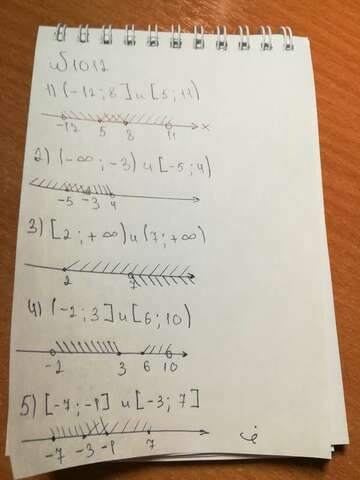 №1012
1) (-12; 8] и [5; 11)
-12 5 8 11 x
2) (-∞; -3) и [-5; 4)
-5 -3 4
3) [2; +∞) и (7; +∞)
2 7
4) (-2; 3] и [6; 10)
-2 3 6 10
5) [-7; -1] и [-3; 7]
-7 -3 -1 7